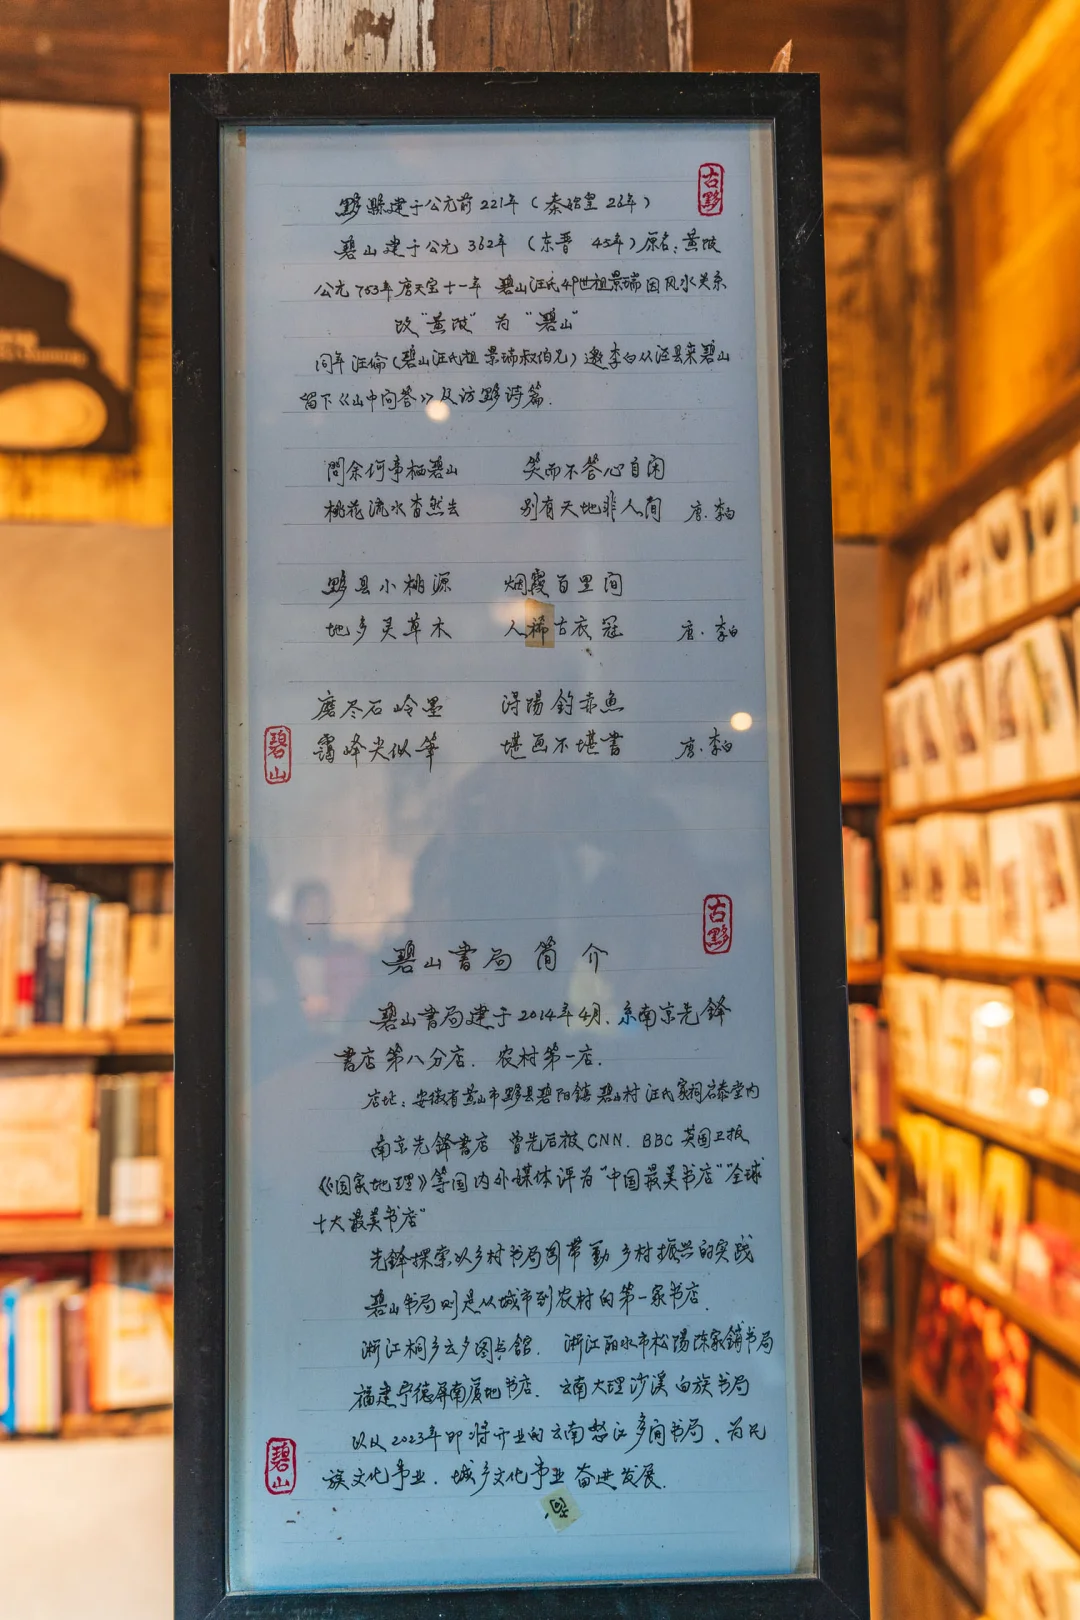 古黟
黟縣建于公元前221年（秦始皇26年）
碧山建于公元362年（东晋 45年）原名：黄陂
公元753年唐天宝十一年 碧山汪氏49世祖景瑞因风水关系
改“黄陂”为“碧山”
同年汪倫（碧山汪氏祖景瑞叔伯兄）邀李白从泾县来碧山
留下《山中问答》及访黟诗篇.
問余何事栖碧山 笑而不答心自闲
桃花流水杳然去 别有天地非人间 唐.李白
黟县小桃源 烟霞百里间
地多灵草木 人稀古衣冠 唐.李白
磨尽石岭墨 浔陽钓赤魚
霭峰尖似筆 堪画不堪書 唐.李白
碧山
古黟
碧山書局简介
碧山書局建于2014年4月、系南京先鋒
書店第八分店. 农村第一店.
店址：安徽省黄山市黟县碧阳镇碧山村汪氏家祠启泰堂内
南京先鋒書店 曾先后被CNN、BBC英国卫报
《国家地理》等国内外媒体评为“中国最美书店”“全球
十大最美书店”
先鋒探索以乡村书局图带動乡村振兴的实践
碧山书局则是从城市到农村的第一家书店.
浙江桐乡云夕图与館. 浙江丽水市松陽陈家鋪书局
福建宁德屏南厦地书店. 云南大理沙溪白族书局
以及2023年即将开业的云南怒江多间书局、为民
族文化事业. 城乡文化事业奋进发展.
碧山